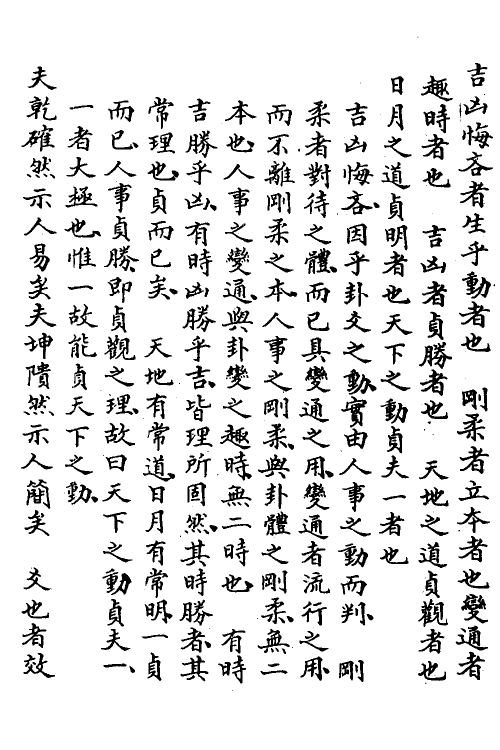 吉凶悔吝者生乎動者也　剛柔者立本者也變通者
趣時者也　吉凶者貞勝者也　天地之道貞觀者也
日月之道貞明者也天下之動貞夫一者也
吉凶悔吝、因乎卦爻之動、實由人事之動而判、　剛
柔者對待之體、而已具變通之用、變通者流行之用、
而不離剛柔之本、人事之剛柔、與卦體之剛柔、無二
本也、人事之變通、與卦變之趣時、無二時也、　有時
吉勝乎凶、有時凶勝乎吉、皆理所固然、其時勝者、其
常理也、貞而已矣、　天地有常道、日月有常明、一貞
而已、人事貞勝、即貞觀之理、故曰天下之動貞夫一、
一者大極也、惟一故能貞天下之動、
夫乾確然示人易矣夫坤隤然示人簡矣　爻也者效